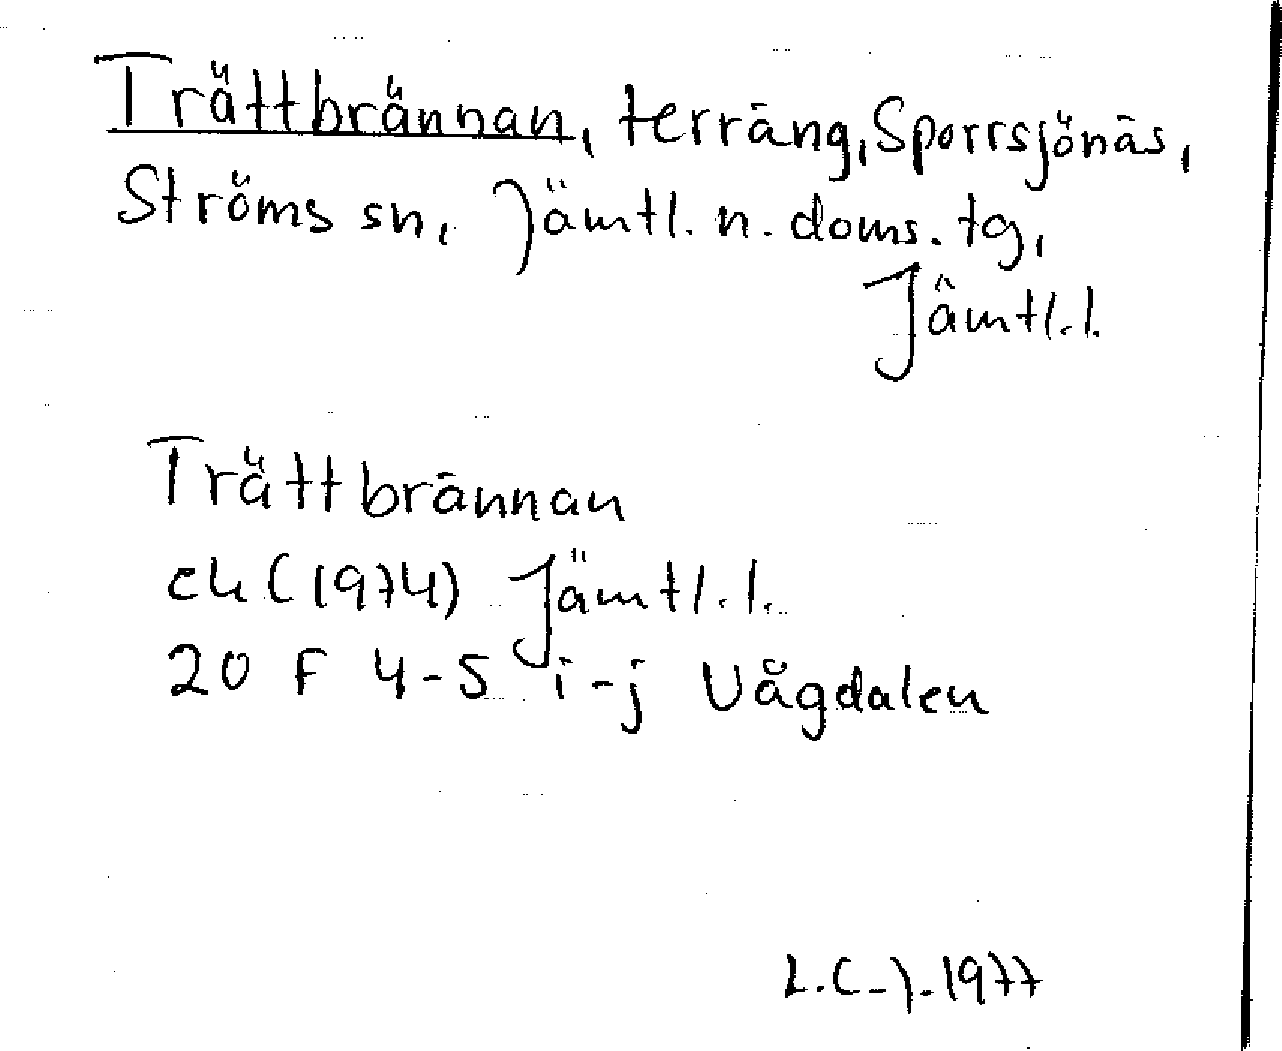 Trättbrännan, terräng, Sporrsjönäs,
Ströms sn, Jämtl. n. doms. tg,
Jämtl. l.
Trättbrännan
ek (1974) Jämtl. l.
20 F 4-5 i-j Vågdalen
L.C-J. 1977